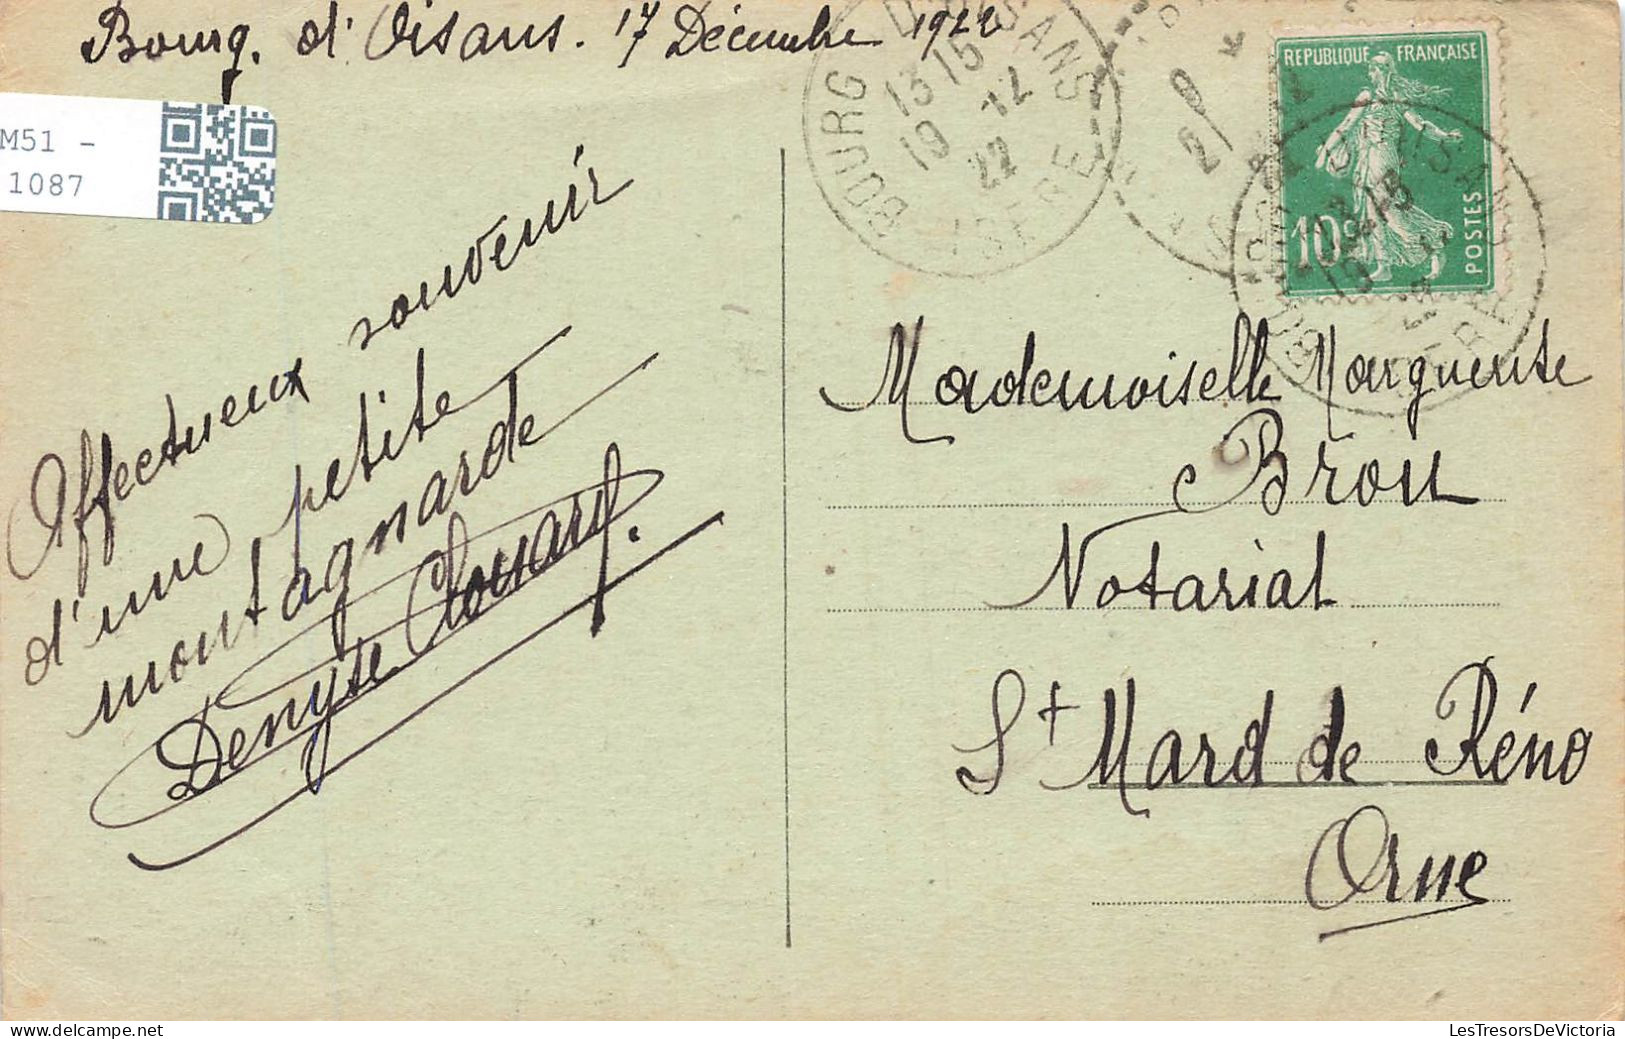 Bourg. d'Oisans. 17 Décembre 1922
M51 -
1087
Effectueux souvenir
d'une petite
montagnarde
Denyse Clouard.
BOURG D'OISANS
13 15
19 - 12
22
ISERE
REPUBLIQUE FRANÇAISE
10c
POSTES
Mademoiselle Marguerite
Brou
Notariat
St Mard de Réno
Orne
LesTresorsDeVictoria